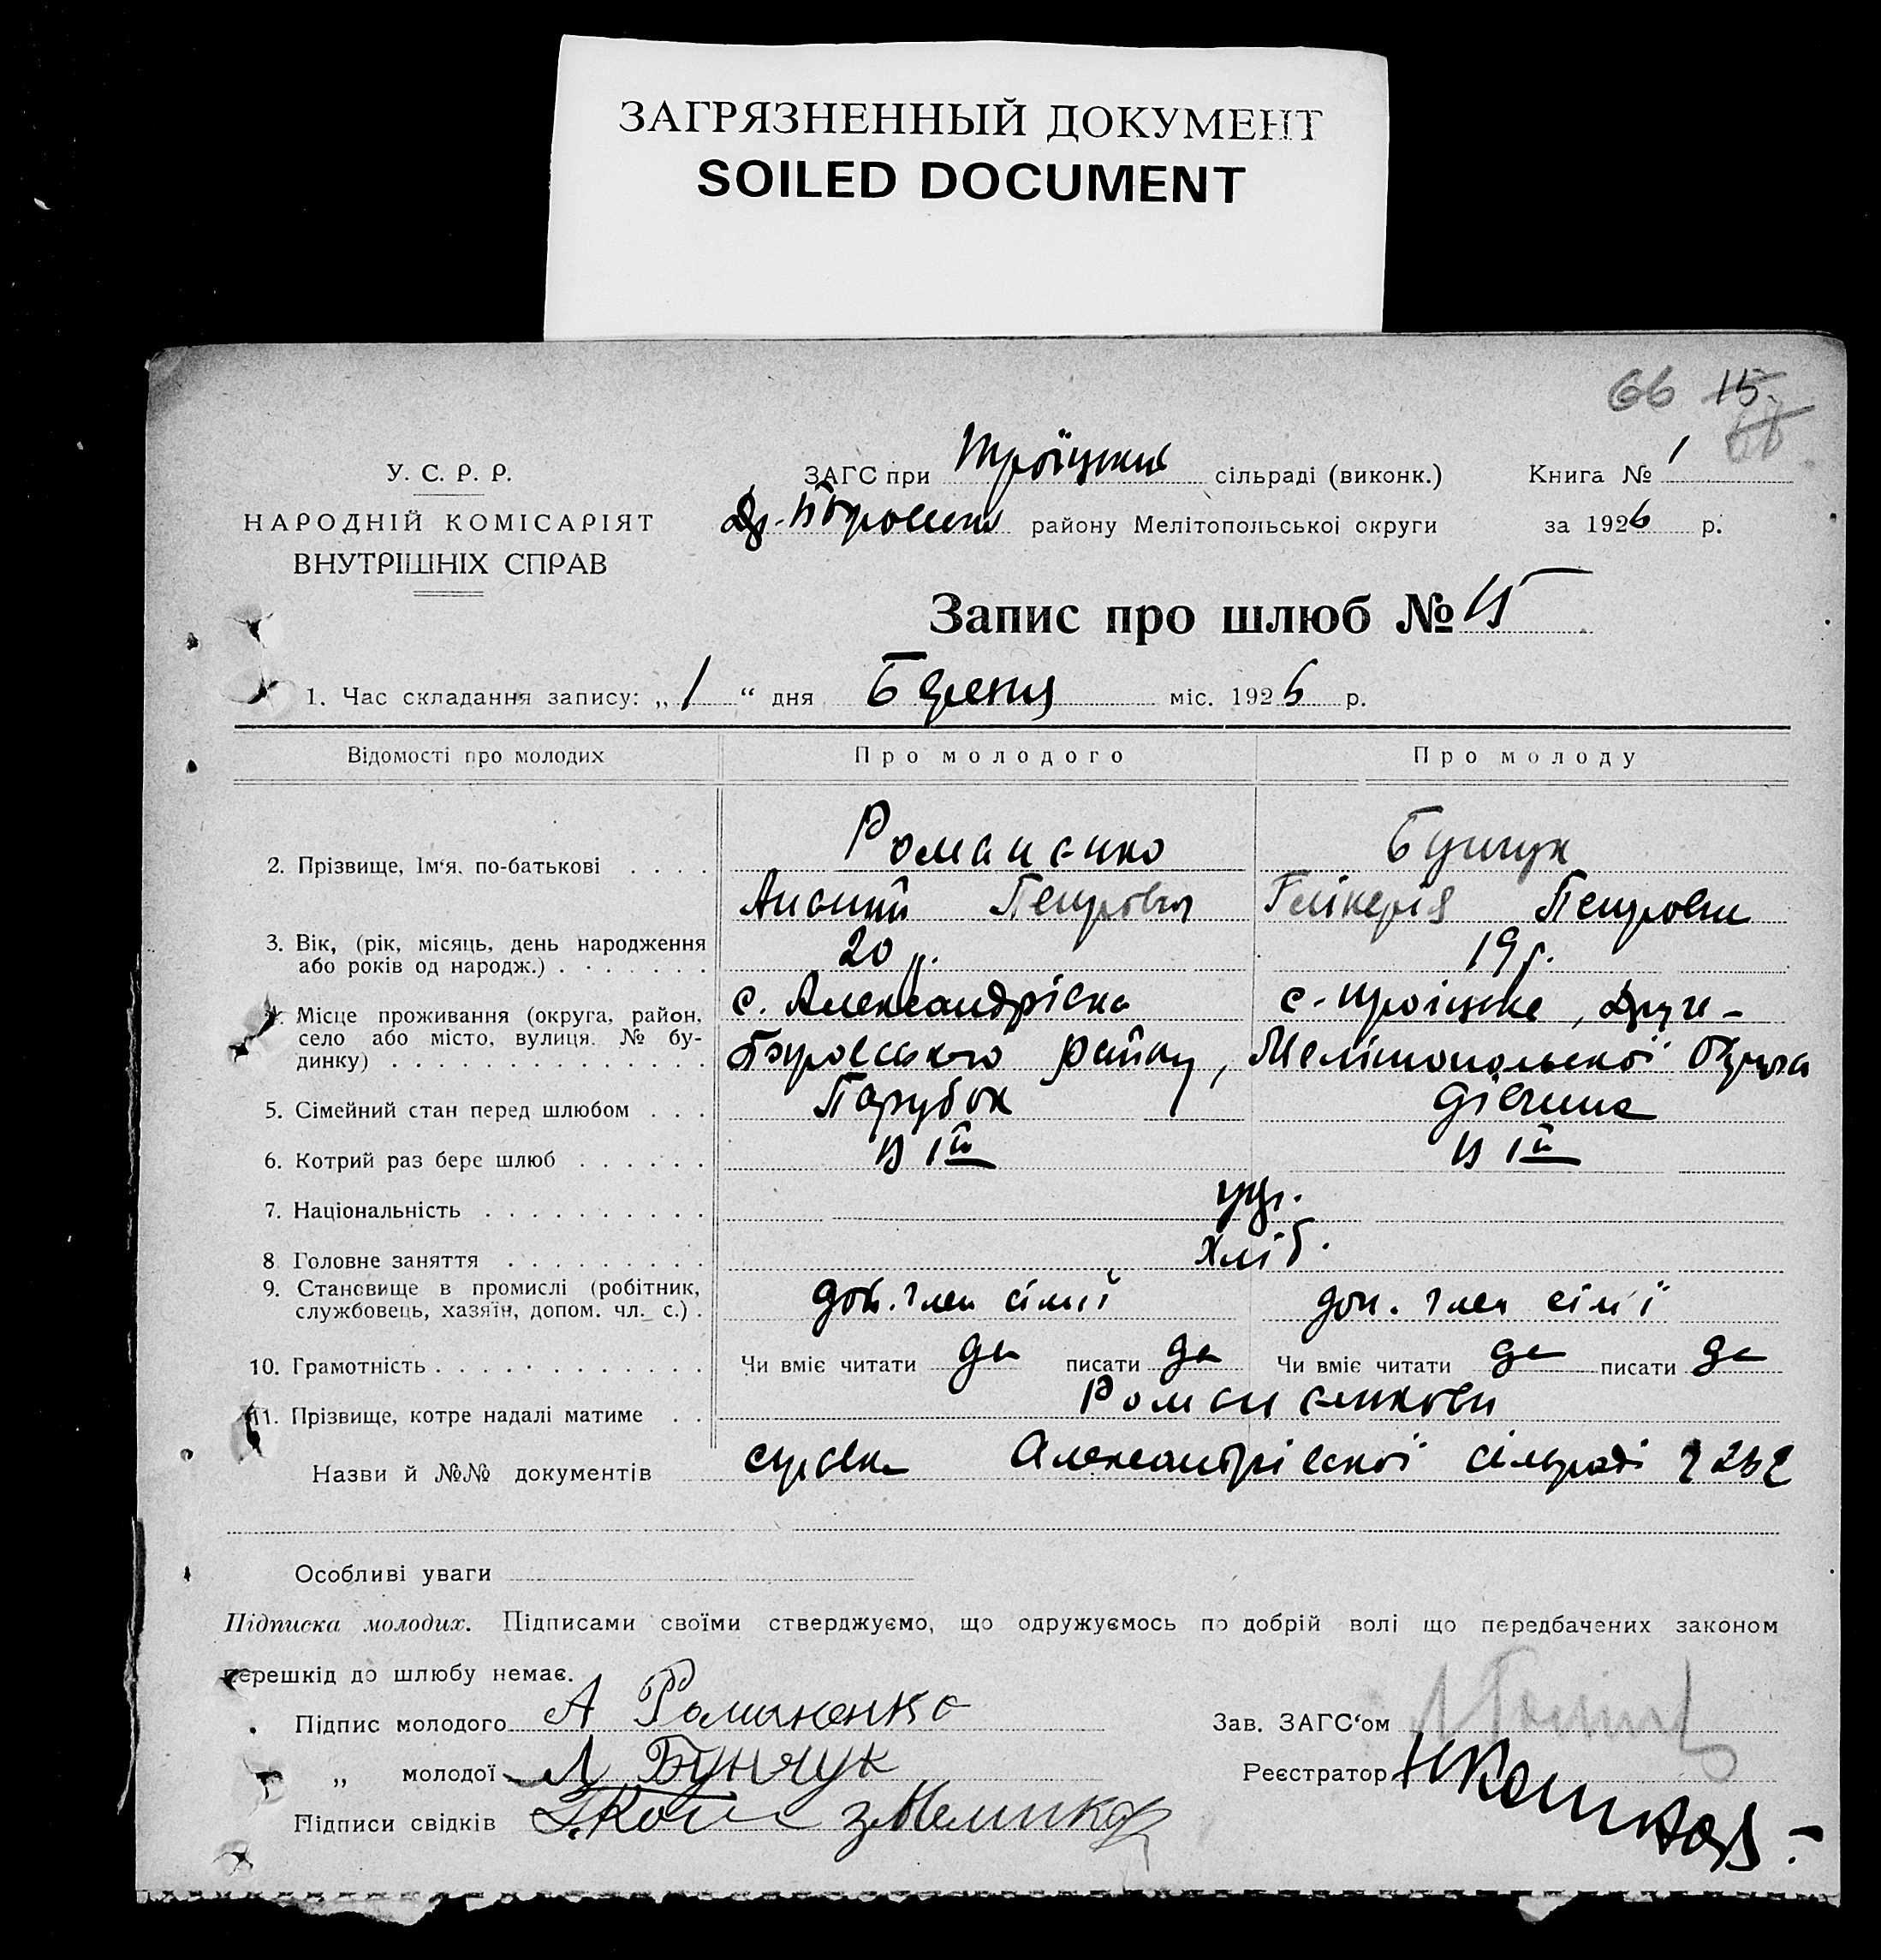 ЗАГРЯЗНЕННЫЙ ДОКУМЕНТ
SOILED DOCUMENT
66 15.
У. С. Р. Р.
НАРОДНІЙ КОМІСАРІЯТ
ВНУТРІШНІХ СПРАВ
ЗАГС при Троїцькій сільраді (виконк.) Книга № 1
району Мелітопольської округи за 1926 р.
Запис про шлюб № 15
1. Час складання запису: „ 1 “ дня Березня міс. 1926 р.
Відомості про молодих Про молодого Про молоду
2. Прізвище, Ім‘я, по-батькові Романенко Бунчук
Петрович Глікерія Петровна
3. Вік, (рік, місяць, день народження
або років од народж.) 20 р. 19 р.
4. Місце проживання (округа, район, с. Александрівка с. Троїцьке,
село або місто, вулиця. № бу-
динку) району, Мелітопольскої Округи
5. Сімейний стан перед шлюбом Парубок Дівчина
6. Котрий раз бере шлюб в 1й в 1й
7. Національність укр.
8 Головне заняття хліб.
9. Становище в промислі (робітник,
службовець, хазяїн, допом. чл. с.) доп. член сімї доп. член сім'ї
10. Грамотність Чи вміє читати да писати да Чи вміє читати да писати да
11. Прізвище, котре надалі матиме Романенкови
Назви й №№ документів справка Александрівскої сільради
Особливі уваги
Підписка молодих. Підписами своїми стверджуємо, що одружуємось по добрій волі що передбачених законом
перешкід до шлюбу немає.
Підпис молодого А Романенко Зав. ЗАГС‘ом
„ молодої Л Бунчук Реєстратор
Підписи свідків